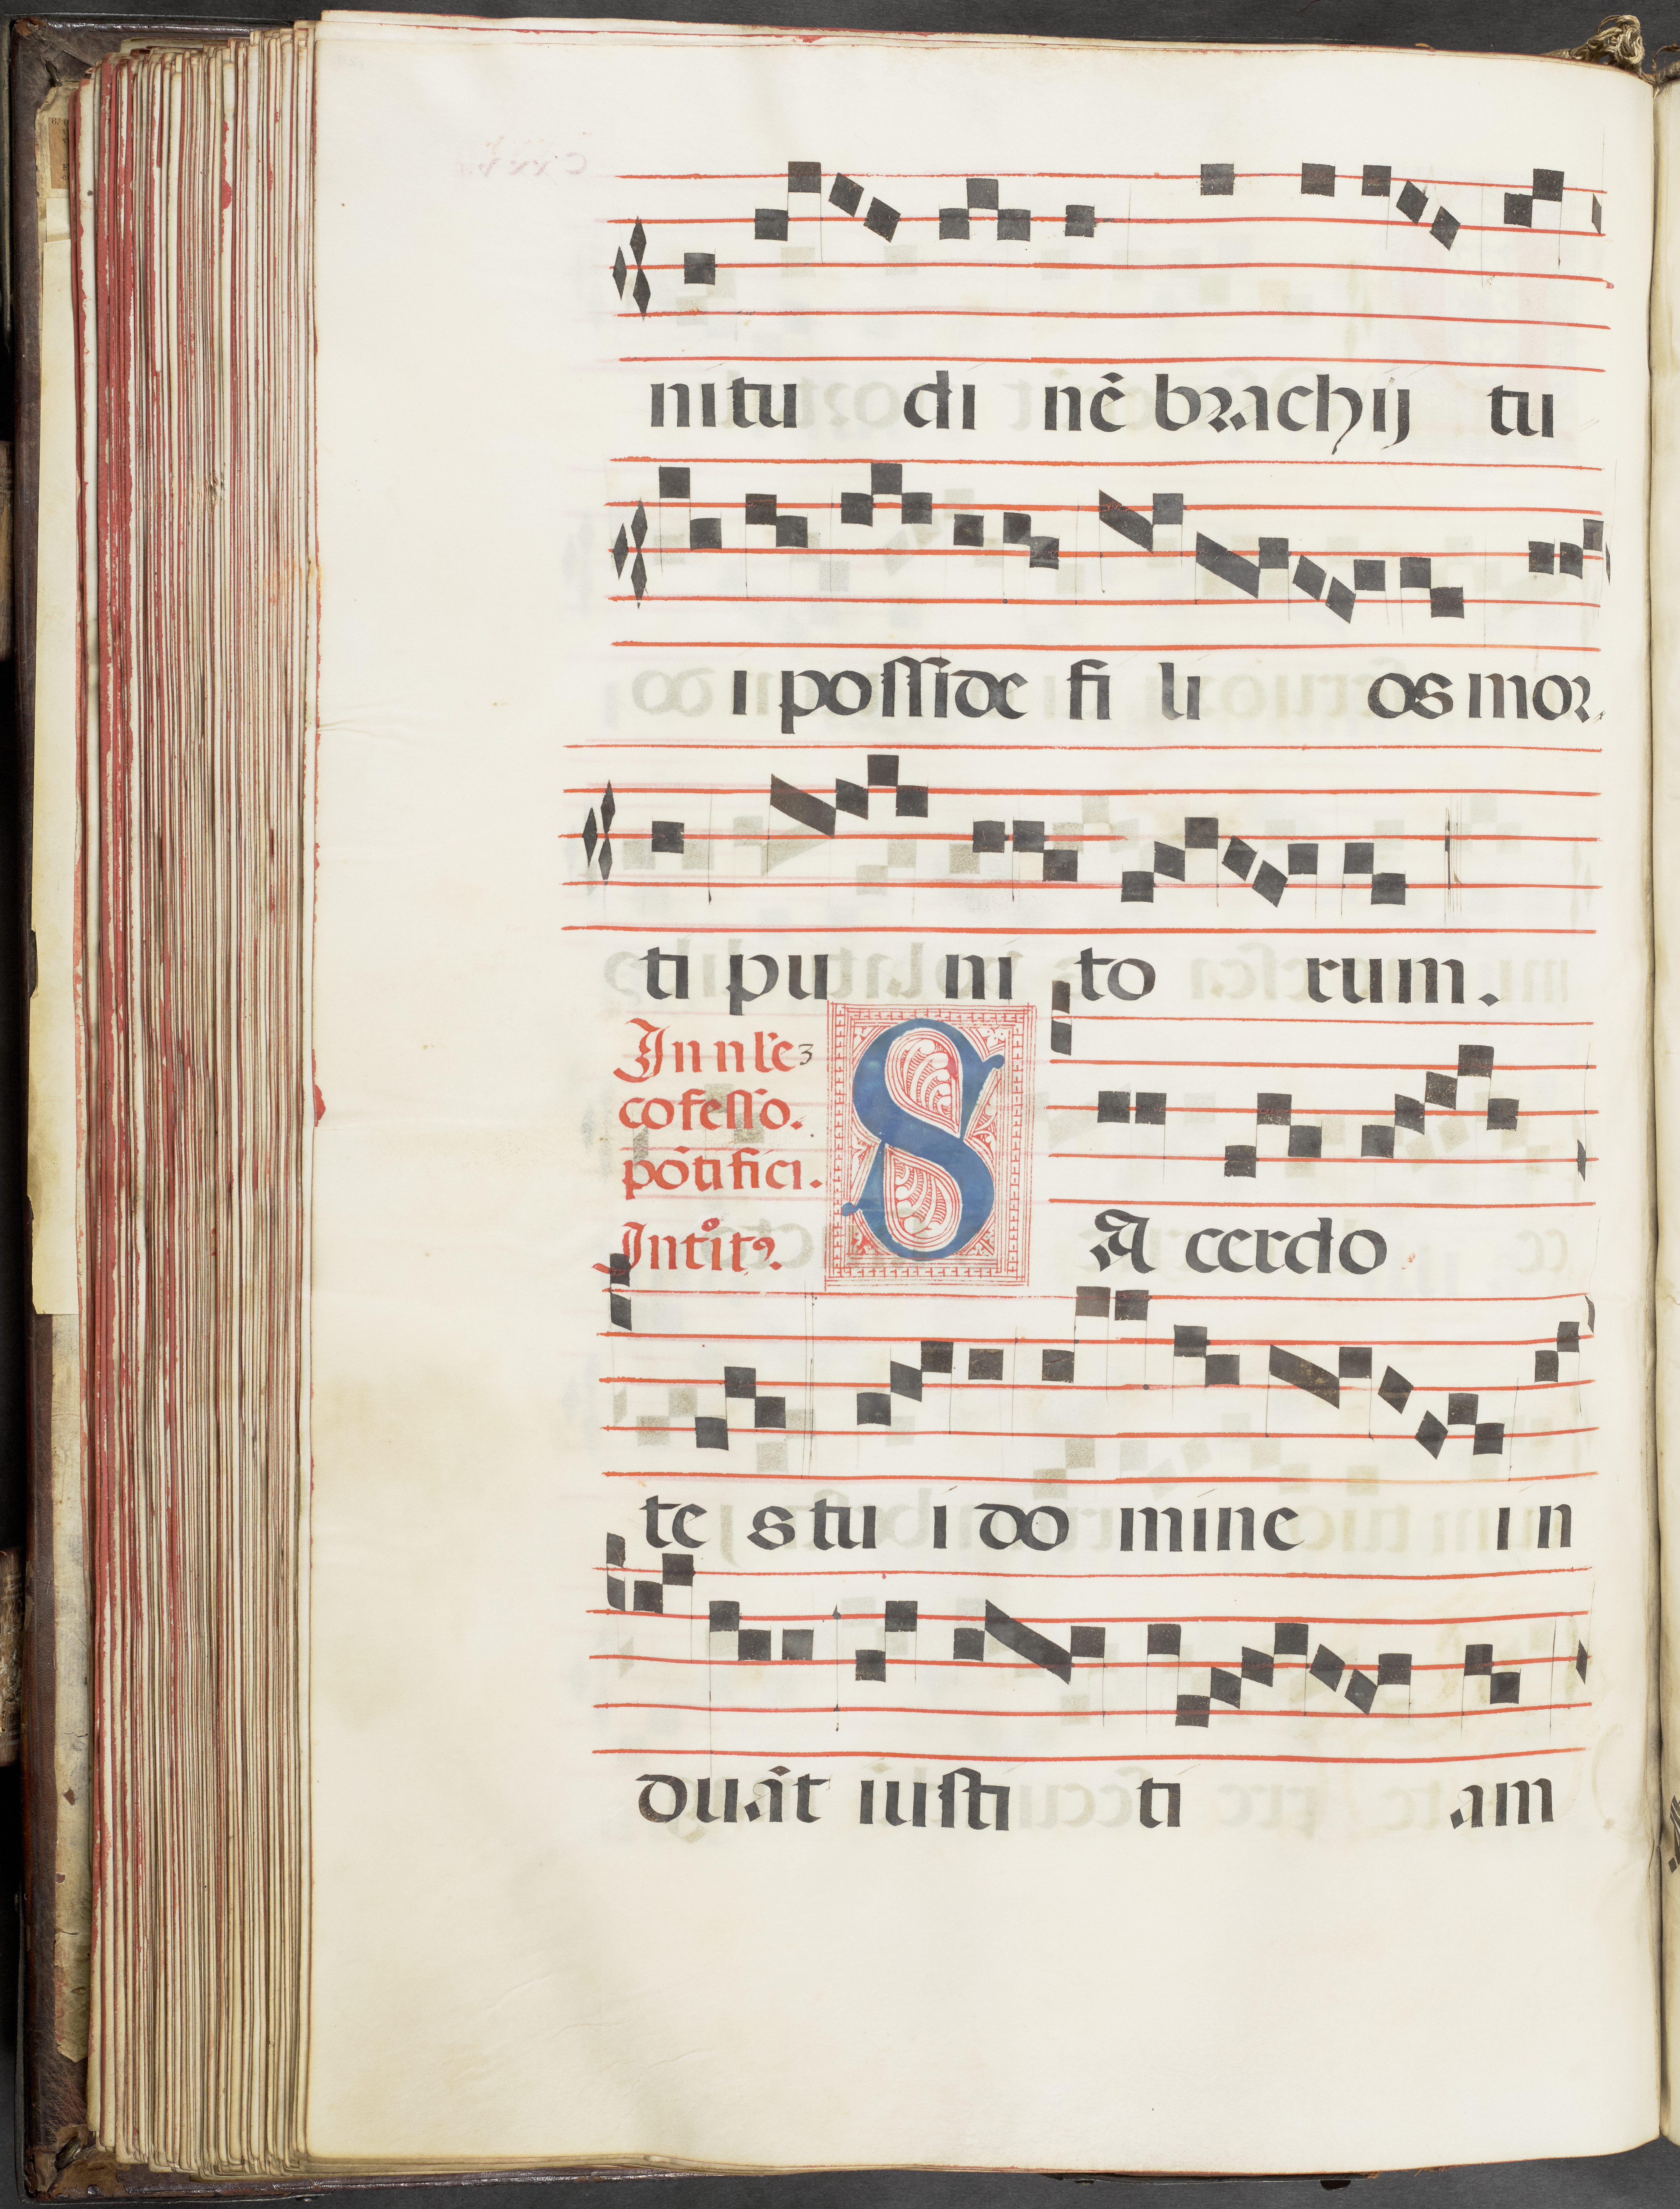 nitu di nē brachij tu
i posside fi li os mor
ti pu ni to rum.
In nr̄e
cofesso.
pōtifici.
Introit⁹.
SA cerdo
te s tu i do mine in
duāt iusti ti am